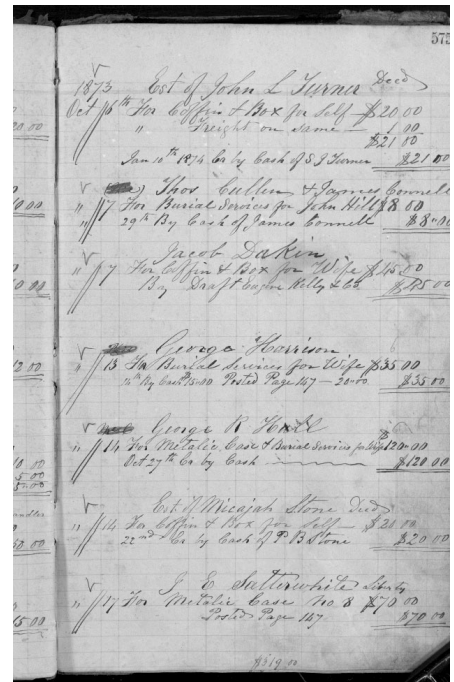 575
1873 Est of John L Turner Decd
Oct 6th For Coffin & Box for Self $20.00
" Freight on same 1 00
$21 00
Jan 10th 1874 Cr by Cash of S J Turner $21 00
Thos Cullen & James Connell
" 7 For Burial Services for John Hill $8.00
" 29th By Cash of James Connell $8.00
Jacob Dakin
" 7 For Coffin & Box for Wife $45.00
By Draft Eugene Kelly & Co $45 00
George Harrison
" 13 For Burial Services for Wife $35.00
By Cash 15.00 Posted Page 147 — 20.00 $35.00
George R
" 14 For Metalic Case & Burial Services for Wife $120.00
Oct 27th Cr by Cash $120.00
Est of Micajah Stone Decd
" 14 For Coffin & Box for Self $20.00
22nd Cr by Cash of P B Stone $20 00
J E Satterwhite Liberty
" 17 For Metalic Case No. 8 $70 00
Posted Page 147 $70 00
$319.00